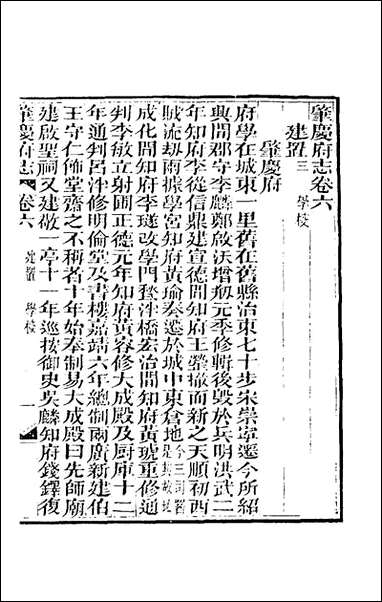 肇慶府志卷六
建置三 學校
肇慶府
府學在城東一里舊在舊縣治東七十步宋崇寧遷今所紹
興間郡守李麟鄭啟沃增剏元季修輯後毀於兵明洪武二
年知府李從信鼎建宣德間知府王瑩撤而新之天順初西
賊流劫兩據學宮知府黃瑜奏遷於城中東倉地今三司署是其故址
成化間知府李璲改學門鑿泮橋宏治間知府黃琥重修通
判李敏立射圃正德元年知府黃容修大成殿及厨庫十二
年通判呂泮修明倫堂及書樓嘉靖六年總制兩廣新建伯
王守仁佈堂齋之不稱者十年始奉制易大成殿曰先師廟
建啟聖祠又建敬一亭十一年巡按御史吳麟知府錢鐸復
肇慶府志 卷六 建置 學校 一